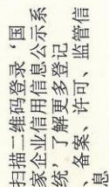 扫描二维码登录‘国
家企业信用信息公示系
统’了解更多登记、
备案、许可、监管信
息